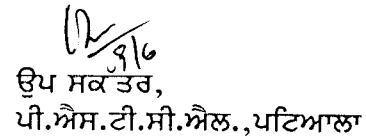 9/6
ਉਪ ਸਕੱਤਰ,
ਪੀ.ਐਸ.ਟੀ.ਸੀ.ਐਲ.,ਪਟਿਆਲਾ